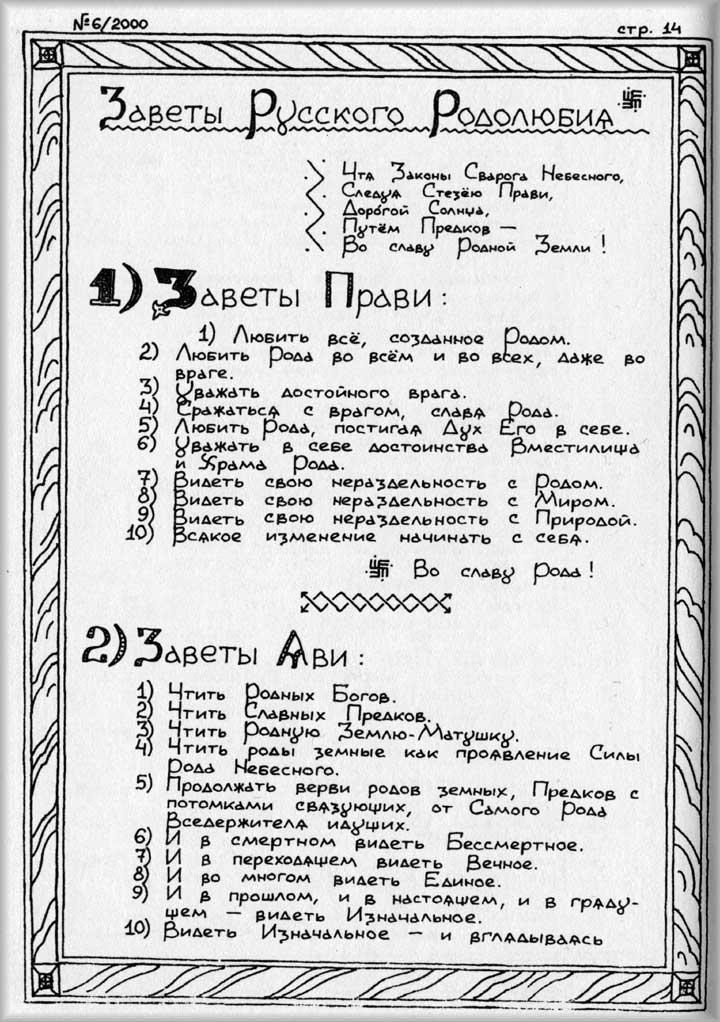 №6/2000
стр. 14
Заветы Русского Родолюбия
Чтя Законы Сварога Небесного,
Следуя Стезёю Прави,
Дорогой Солнца,
Путём Предков —
Во славу Родной Земли!
1) Заветы Прави:
1) Любить всё, созданное Родом.
2) Любить Рода во всём и во всех, даже во
враге.
3) Уважать достойного врага.
4) Сражаться с врагом, славя Рода.
5) Любить Рода, постигая Дух Его в себе.
6) Уважать в себе достоинства Вместилища
и Храма Рода.
7) Видеть свою нераздельность с Родом.
8) Видеть свою нераздельность с Миром.
9) Видеть свою нераздельность с Природой.
10) Всякое изменение начинать с себя.
Во славу Рода!
2) Заветы Яви:
1) Чтить Родных Богов.
2) Чтить Славных Предков.
3) Чтить Родную Землю-Матушку.
4) Чтить роды земные как проявление Силы
Рода Небесного.
5) Продолжать верви родов земных, Предков с
потомками связующих, от Самого Рода
Вседержителя идущих.
6) И в смертном видеть Бессмертное.
7) И в переходящем видеть Вечное.
8) И во многом видеть Единое.
9) И в прошлом, и в настоящем, и в гряду-
щем — видеть Изначальное.
10) Видеть Изначальное — и вглядываясь